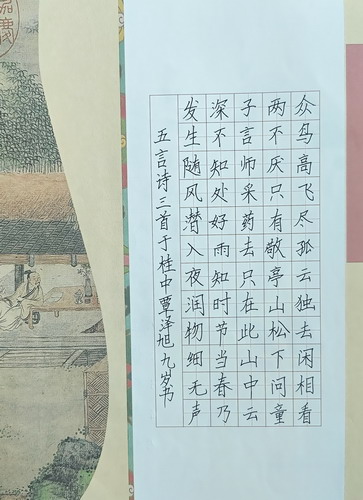 众鸟高飞尽孤云独去闲相看
两不厌只有敬亭山松下问童
子言师采药去只在此山中云
深不知处好雨知时节当春乃
发生随风潜入夜润物细无声
五言诗三首于桂中覃泽旭九岁书